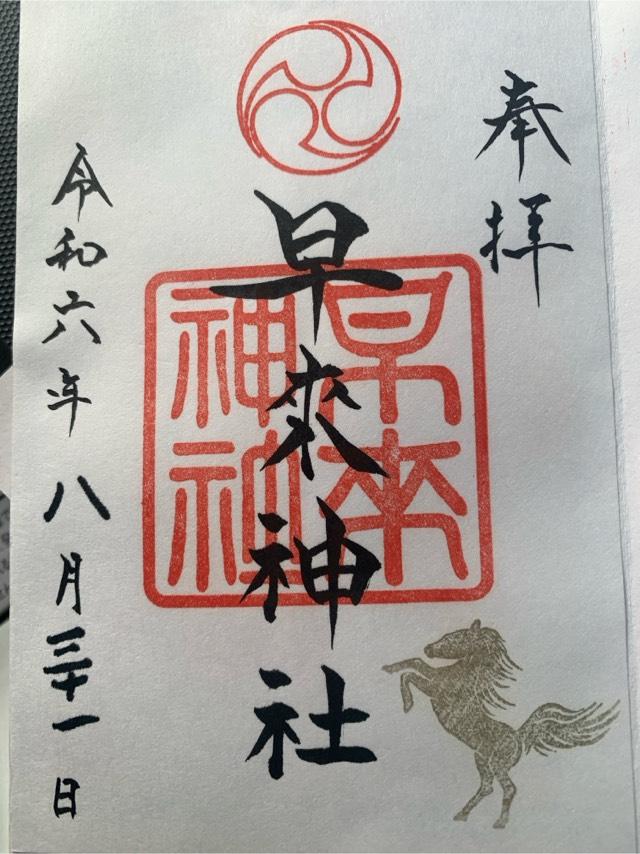 奉拝
早来神社
早来
神社
令和六年八月三十一日